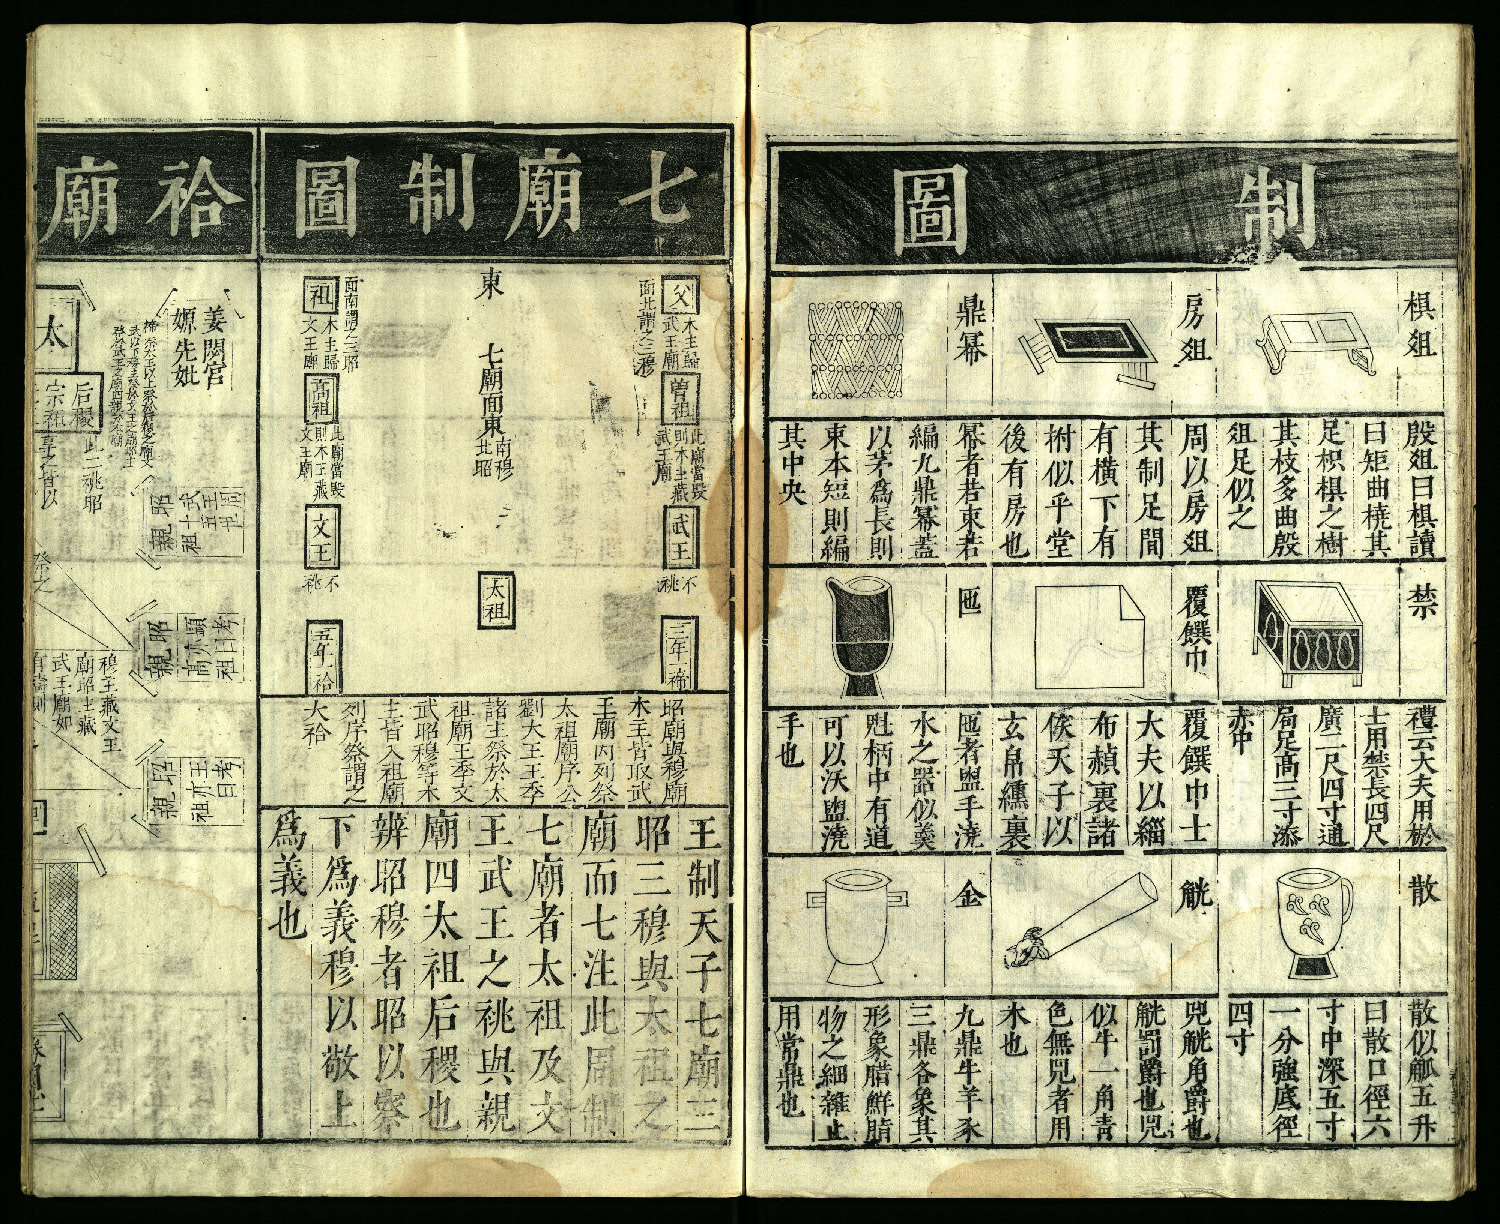 制圖
椇俎
殷俎曰椇讀
曰矩曲橈其
足枳椇之樹
其枝多曲殷
俎足似之
房俎
周以房俎
其制足間
有橫下有
柎似乎堂
後有房也
鼎冪
冪者若束若
編九鼎冪蓋
以茅爲長則
束本短則編
其中央
禁
禮云大夫用棜
士用禁長四尺
廣二尺四寸通
局足高三寸漆
赤中
覆饌巾
覆饌巾士
大夫以緇
布赬裏諸
侯天子以
玄帛纁裏
匜
匜者盥手澆
水之器似羹
魁柄中有道
可以沃盥澆
手也
散
散似觚五升
曰散口徑六
寸中深五寸
一分強底徑
四寸
觥
兕觥角爵也
觥罰爵也兕
似牛一角青
色無兕者用
木也
九鼎牛羊豕
三鼎各象其
形象腊鮮腈
物之細雜止
用常鼎也
七廟制圖
父
木主歸
武王廟
面北謂之三穆
曾祖
此廟當毀
則木主藏
武王廟
武王
不
祧
三年一禘
東
七廟面東
南穆
北昭
太祖
面南謂之三昭
祖
木主歸
文王廟
高祖
此廟當毀
則木主藏
文王廟
文王
不
祧
五年一祫
昭廟與穆廟
木主皆取武
王廟內列祭
太祖廟序公
劉大王王季
諸主祭於太
祖廟王季文
武昭穆等木
主皆入祖廟
列序祭謂之
大祫
王制天子七廟三
昭三穆與太祖之
廟而七注此周制
七廟者太祖及文
王武王之祧與親
廟四太祖后稷也
辨昭穆者昭以察
下爲義穆以敬上
爲義也
祫廟
姜閟宮
嫄先妣
太
后稷
宗祖
此二祧昭
穆王藏文王
廟昭主藏
武王廟如
親昭
親昭
高亦顯
祖曰考
親昭
祖亦王
曰考